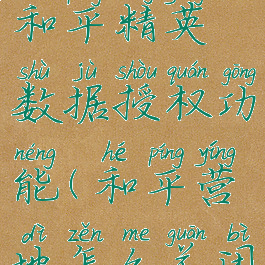 和平精英
shù jù shòu quán gōng
数据授权功
néng hé píng yíng
能(和平营
dì zěn me guān bì
地怎么关闭